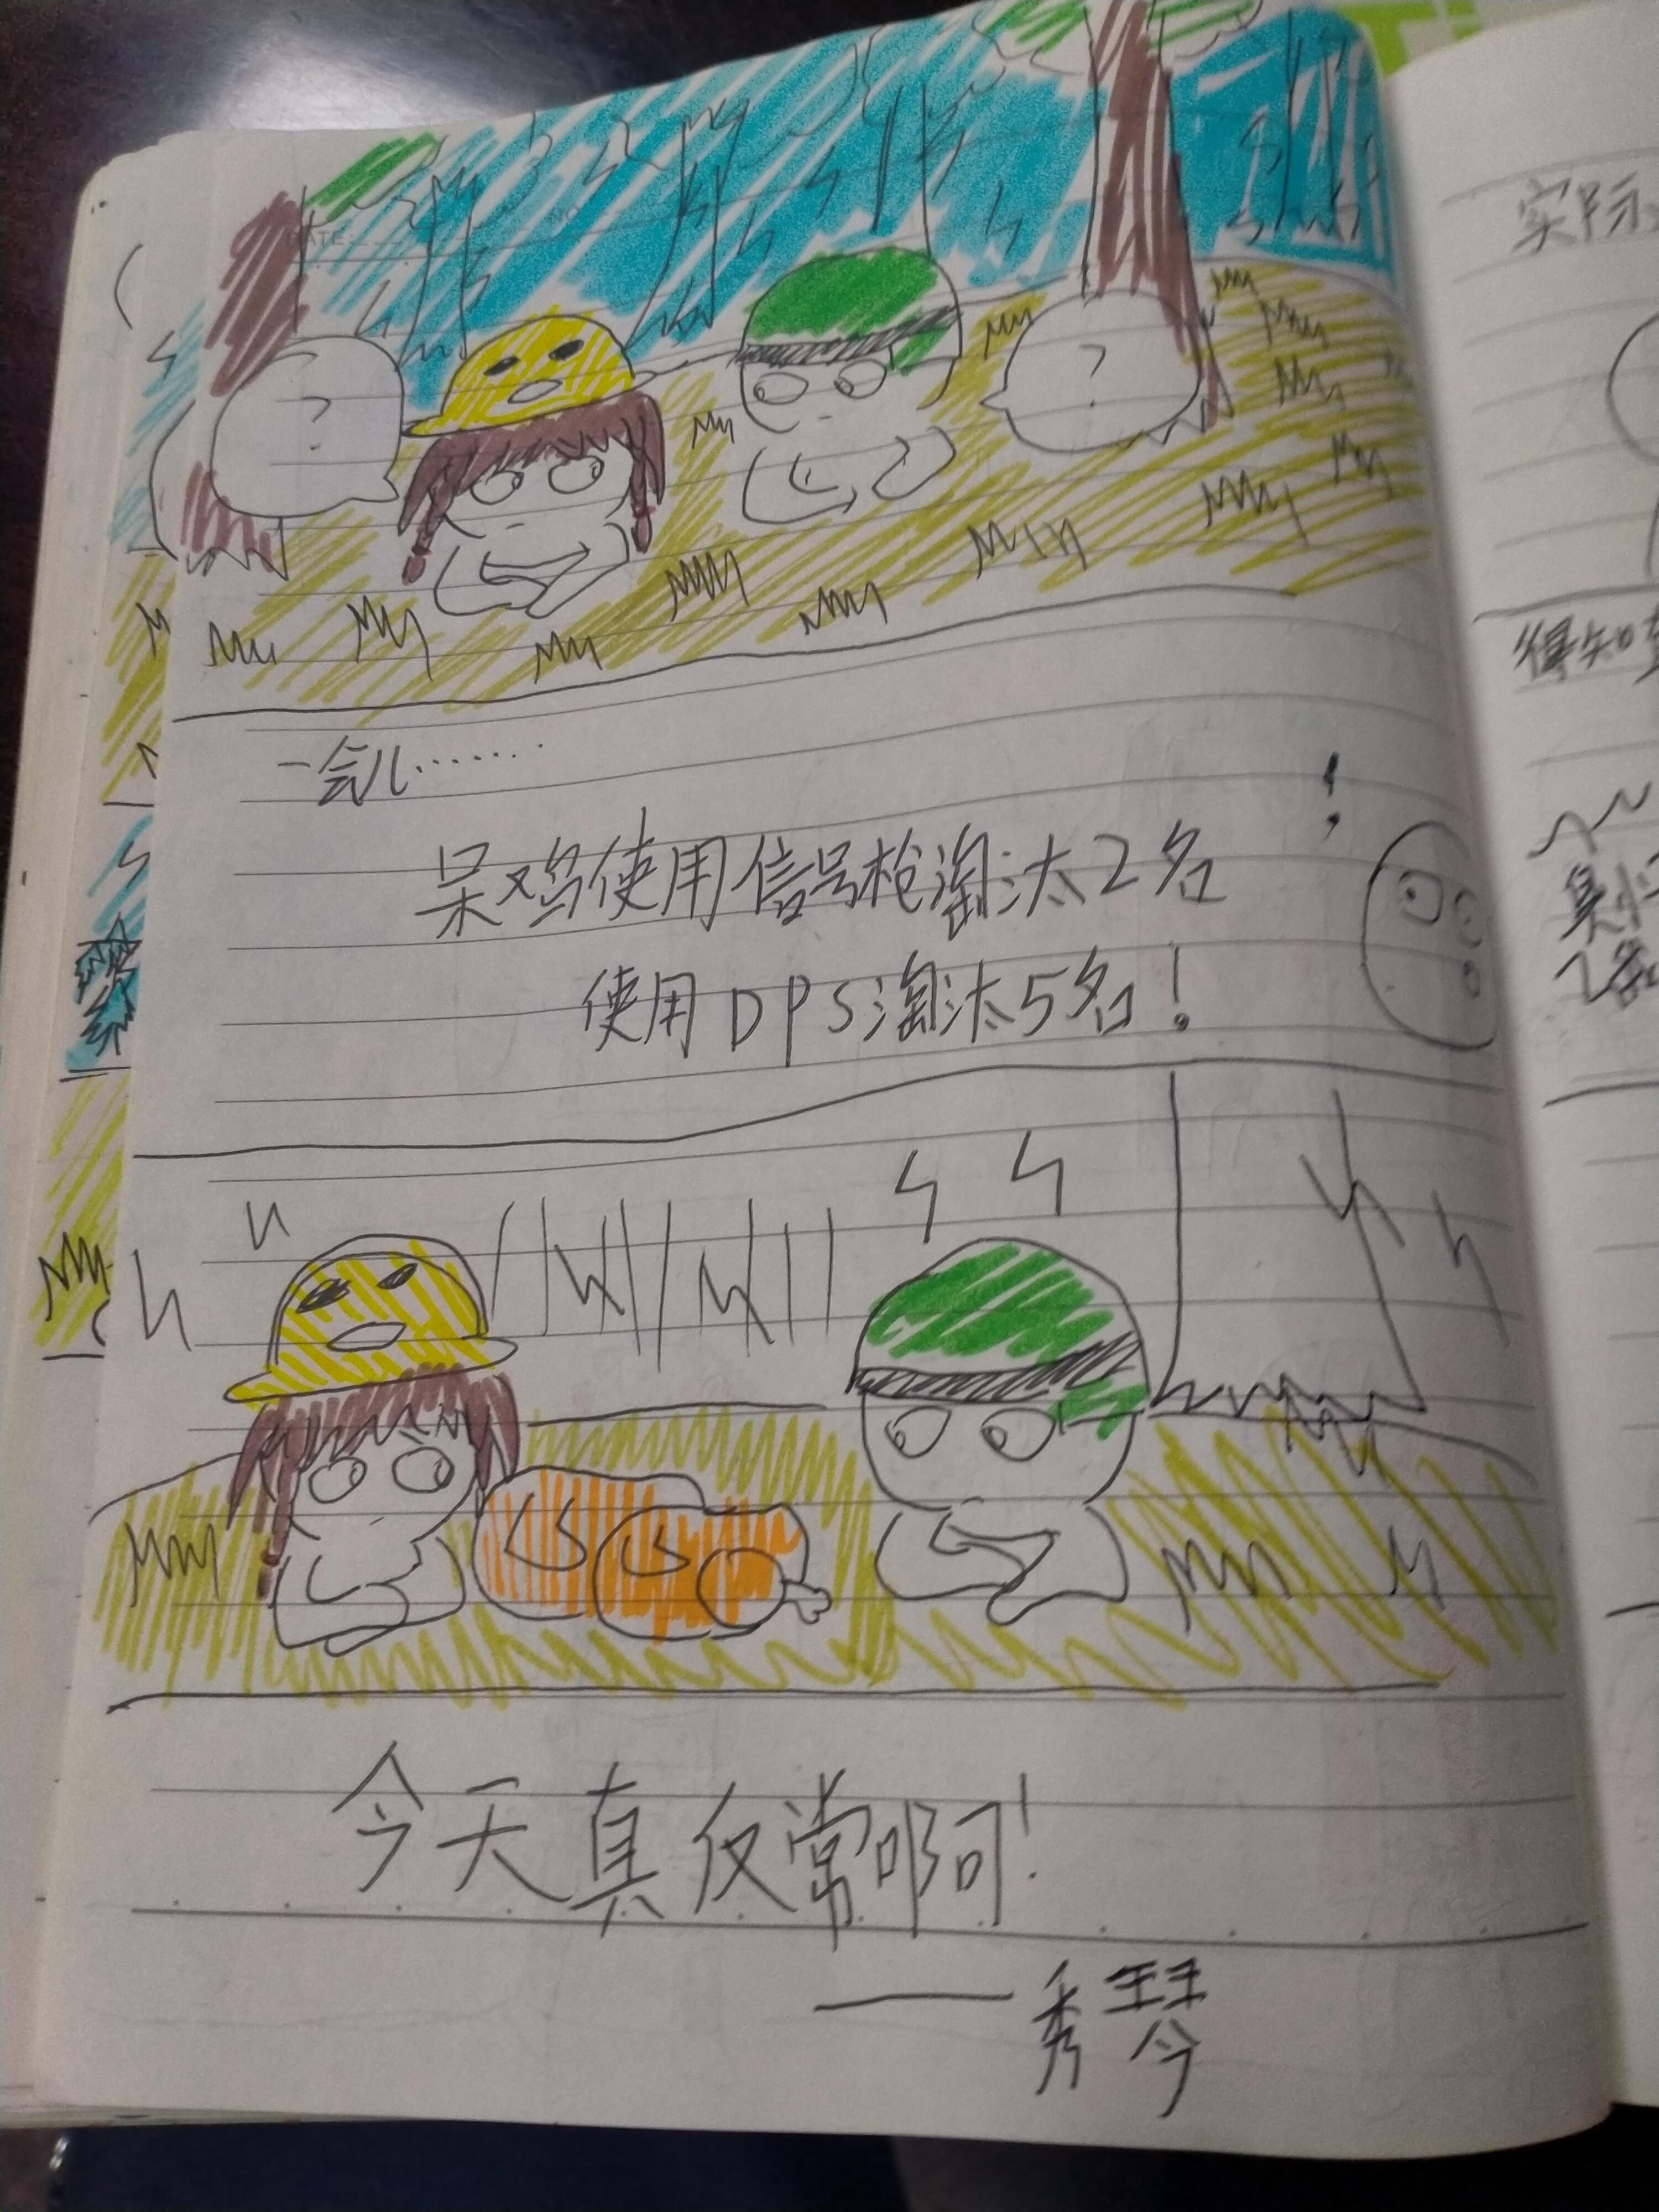 DATE:
NO.
?
?
一会儿……
呆鸡使用信号枪淘汰2名
使用DPS淘汰5名！
！
今天真反常啊！
——秀琴
实际
得知
臭小